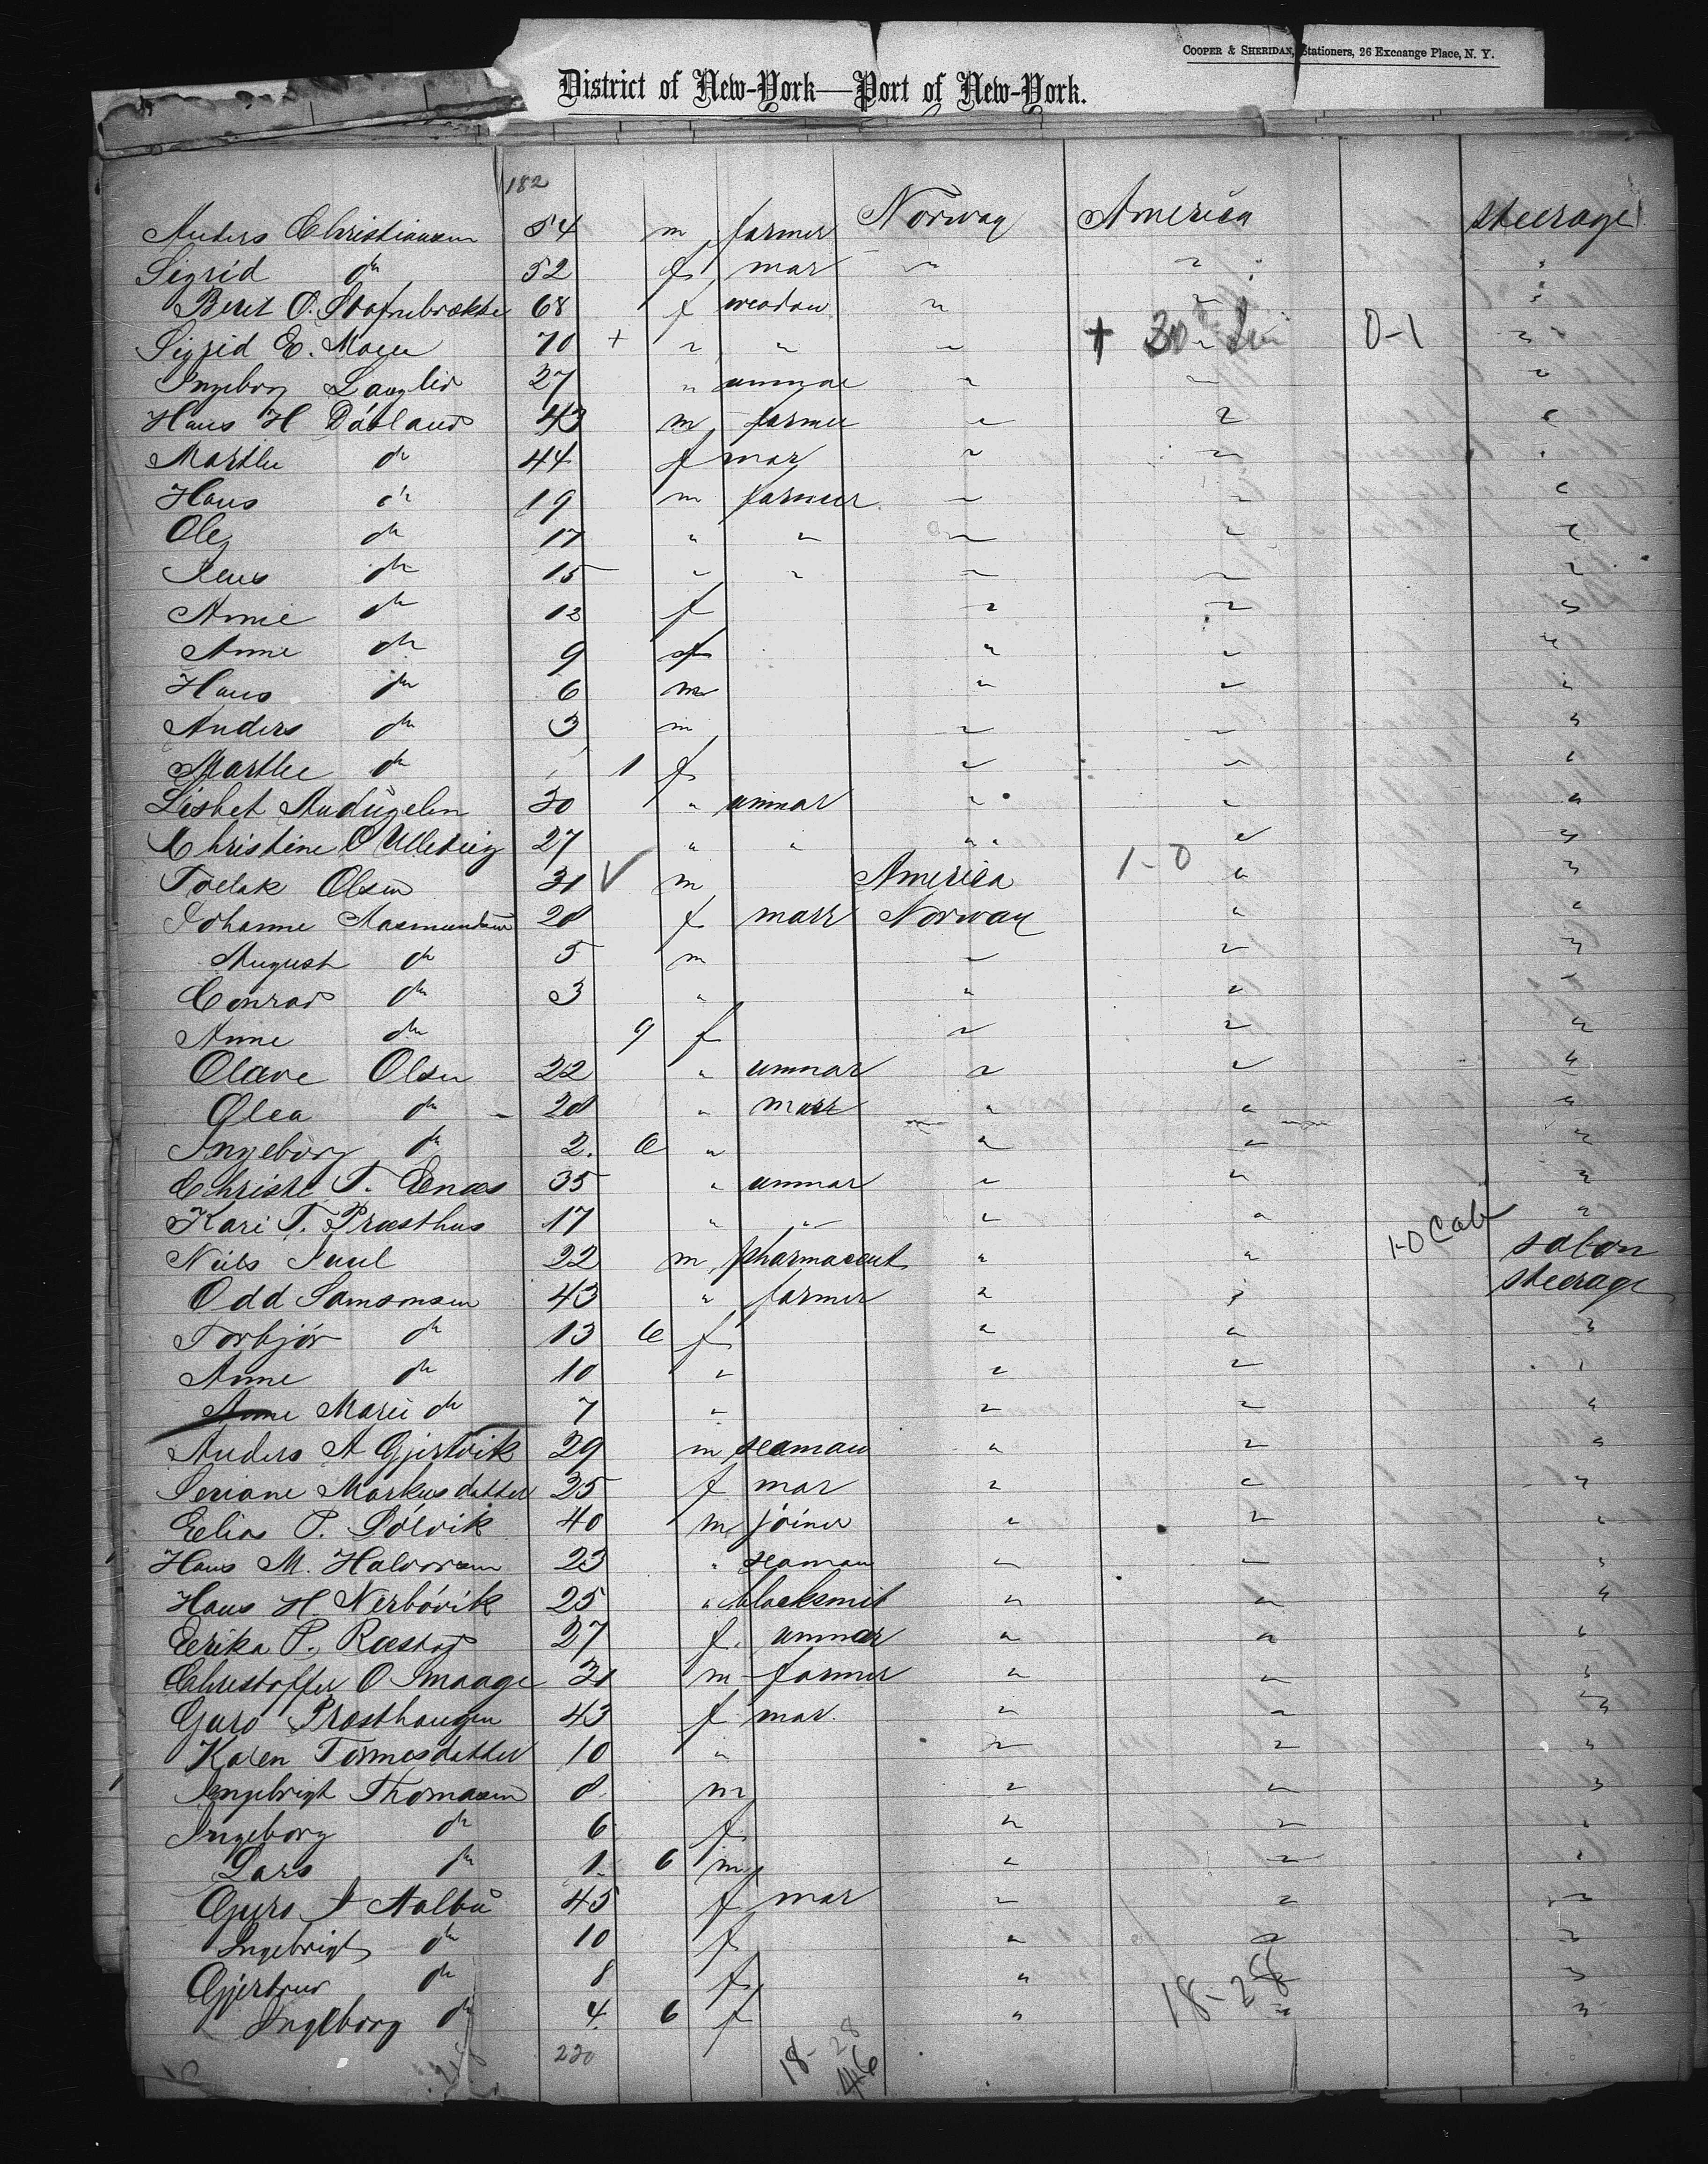 COOPER & SHERIDAN, Stationers, 26 Exchange Place, N. Y.
District of New-York—Port of New-York.
182
Anders Christiansen 54 m farmer Norway America steerage
Sigrid do 52 f mar " " "
Berit O. 68 f " " "
Sigrid E. Moen 70 + " " " + 30 0-1 "
Ingeborg 27 " " " "
Hans H 43 m farmer " " "
Marthe do 44 f mar " " "
Hans do 19 m farmer " " "
Ole do 17 " " " " "
Jens do 15 " " " " "
Anne do 12 f " " "
Anne do 9 f " " "
Hans do 6 m " " "
Anders do 3 m " " "
Marthe do 1 f " " "
Lisbet 30 " unmar " " "
Christine O 27 " " " " "
Olsen 31 ✓ m America 1-0 " "
Johanne Rasmundsen 28 f marr Norway " "
August do 5 m " " "
Conrad do 3 " " " "
Anne do 9 f " " "
Olave Olsen 22 " unmar " " "
Olea do 28 " marr " " "
Ingeborg do 2. 6 " " " "
Christi T. 35 " unmar " " "
Kari T. Præsthus 17 " " " " "
Niels Juul 22 m pharmaceut " " 1-0 Cab salon
Odd Samsonsen 43 " farmer " " steerage
Torbjör do 13 6 f " " "
Anne do 10 " " " "
Anne Marie do 7 " " " "
Anders A Gjertvik 29 m seaman " " "
Seriane Markusdatter 25 f mar " " "
Elias P. Sölvik 40 m joiner " " "
Hans M. Halvorsen 23 " seaman " " "
Hans H Nerbövik 25 " blacksmit " " "
Erika P. 27 f. unmar " " "
Christoffer O Smaage 31 m farmer " " "
Guro Præsthaugen 43 f mar. " " "
Karen Tormesdatter 10 " " " "
Ingebrigt Thomasen 8 m " " "
Ingeborg do 6 f " " "
Lars do 1. 6 m " " "
Guro Aalbu 45 f mar " " "
Ingebrigt do 10 f " " "
Gjertrud do 8 f " " "
Ingeborg do 4. 6 f " 18-28 " "
230 18-28
46